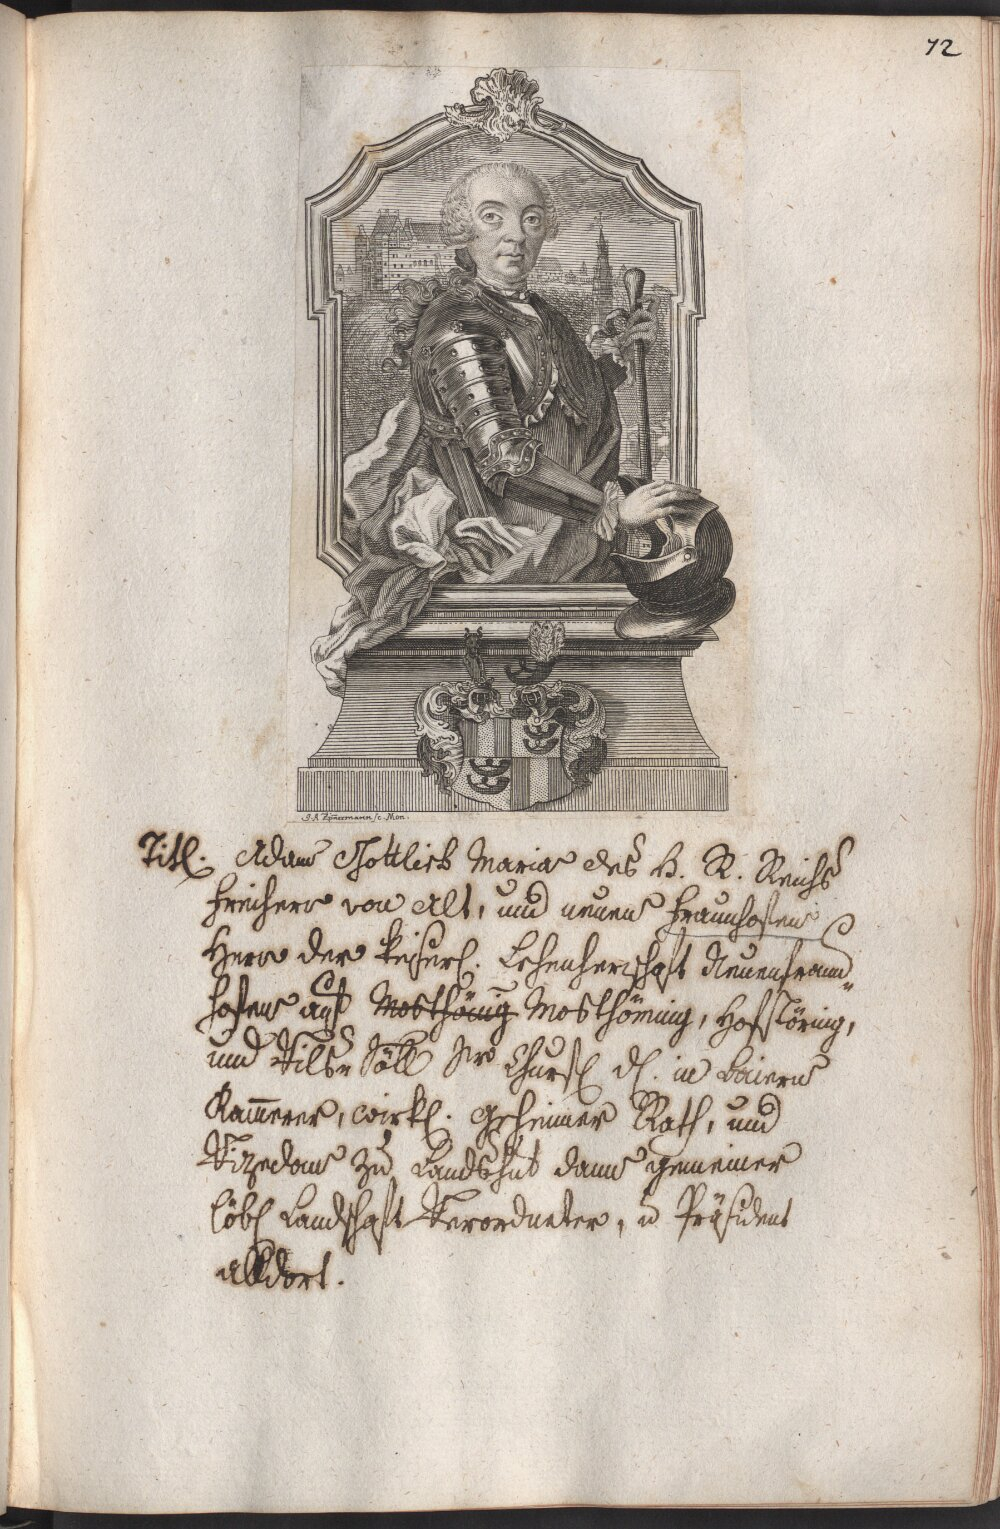 72
J. A. Zimermann sc. Mon.
Titl. Adam Gottlieb Maria des H. R. Reichs
Freiherr von Alt, und neuen Fraunhofen
Herr der keiserl. Lehenherrschaft Neuenfraun„
hofen auf Mosthönig Mosthöming, Hofstöring,
und Vils„ Söll Sr Churfl dl. in Baiern
Kam̄erer, wirkl. geheimer Rath, und
Vizedom zu Landshut dann gemeiner
löbl Landschaft Verordneter, u Präsident
alldort.